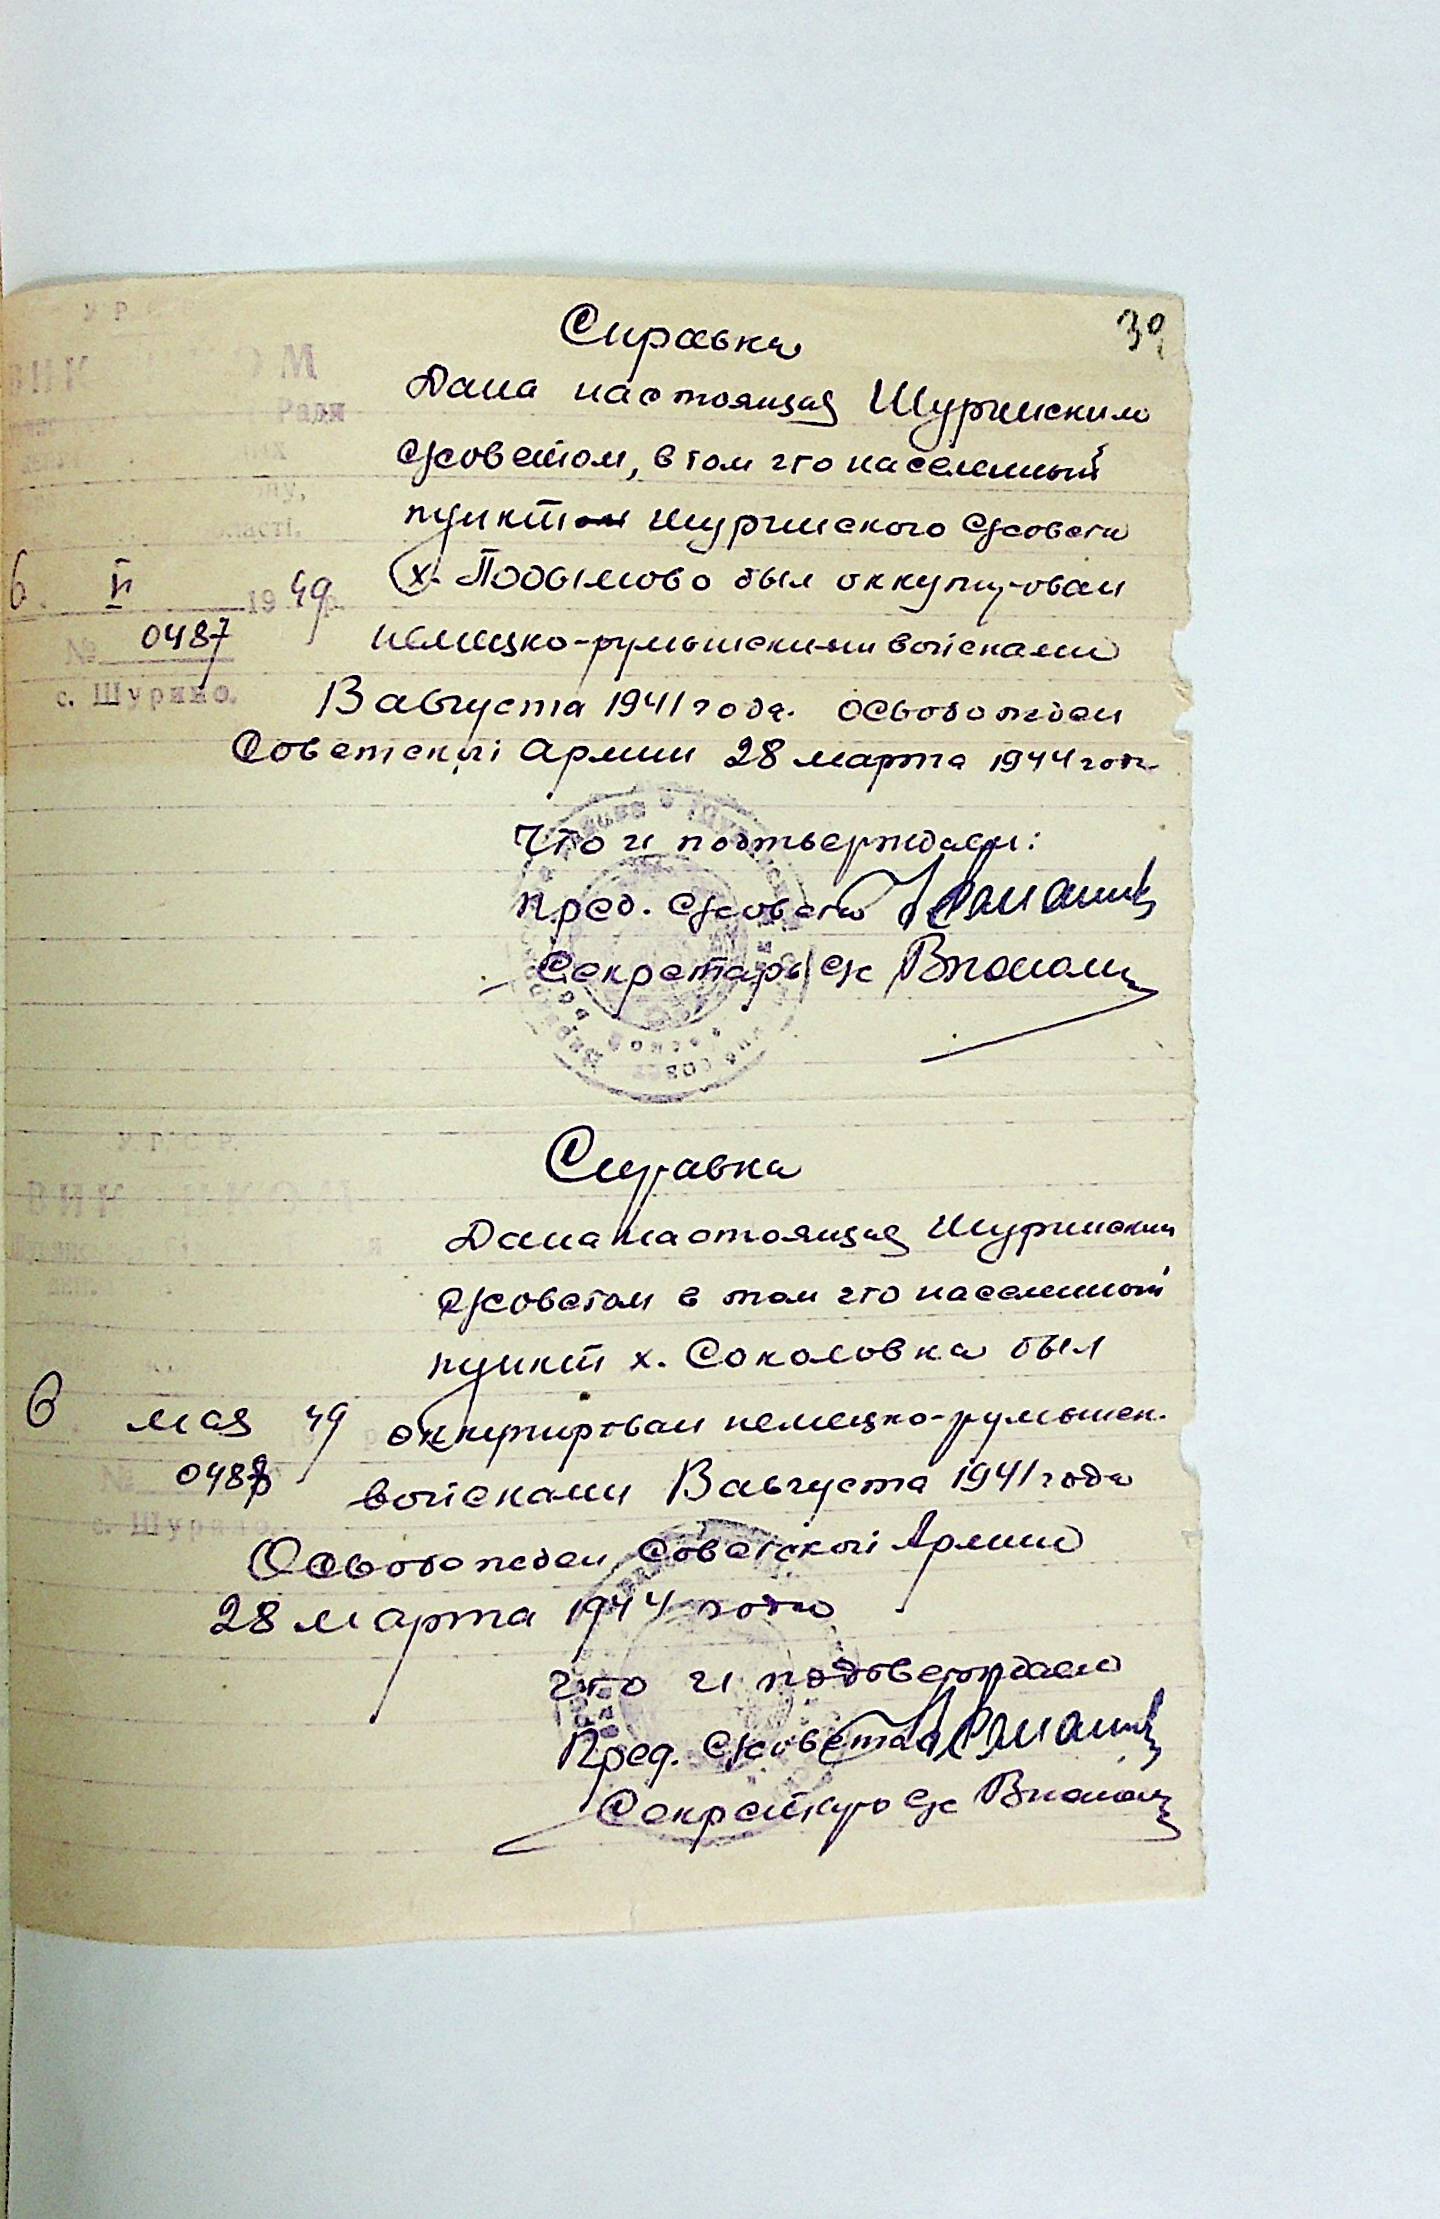 39
У Р С Р
ВИКОНКОМ
Ради
області.
6 V 1949 р.
№ 0487
с. Щурино.
Справка
Дана настоящая Щуринским
с/советом, в том что населенный
пункт Щуринского с/совета
х. Подымово был оккупирован
немецко-румынскими войсками
13 августа 1941 года. Освобожден
Советской Армии 28 марта 1944 года
Что и подтверждаем:
Пред. с/совета
Секретарь с/с
У Р С Р.
ВИКОНКОМ
6 мая 49 р
№ 0488
с. Щурино.
Справка
Дана настоящая Щуринским
с/советом в том что населенный
пункт х. Соколовка был
оккупирован немецко-румынск.
войсками 13 августа 1941 года
Освобожден Советской Армии
28 марта 1944 года
что и подтверждаем
Пред. с/совета
Секретарь с/с